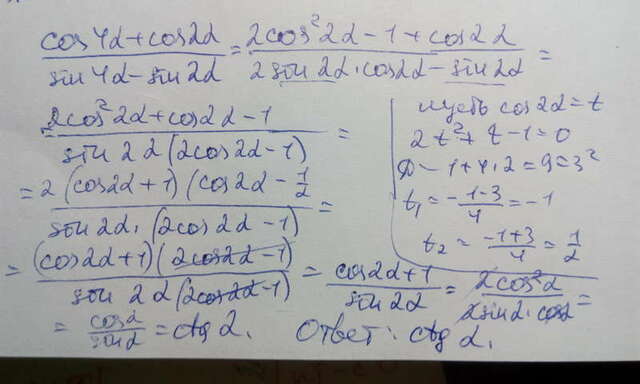 cos4α+cos2α / sin4α-sin2α = 2cos²2α-1+cos2α / 2sin2α·cos2α-sin2α =
2cos²2α+cos2α-1 / sin2α(2cos2α-1) =
= 2(cos2α+1)(cos2α-1/2 / sin2α·(2cos2α-1) =
= (cos2α+1)(2cos2α-1) / sin2α(2cos2α-1) = cos2α+1 / sin2α = 2cos²α / 2sinα·cosα =
= cosα / sinα = ctgα. Ответ: ctgα.
пусть cos2α=t
2t²+t-1=0
D-1+4·2=9=3²
t₁=-1-3/4=-1
t₂=-1+3/4=1/2